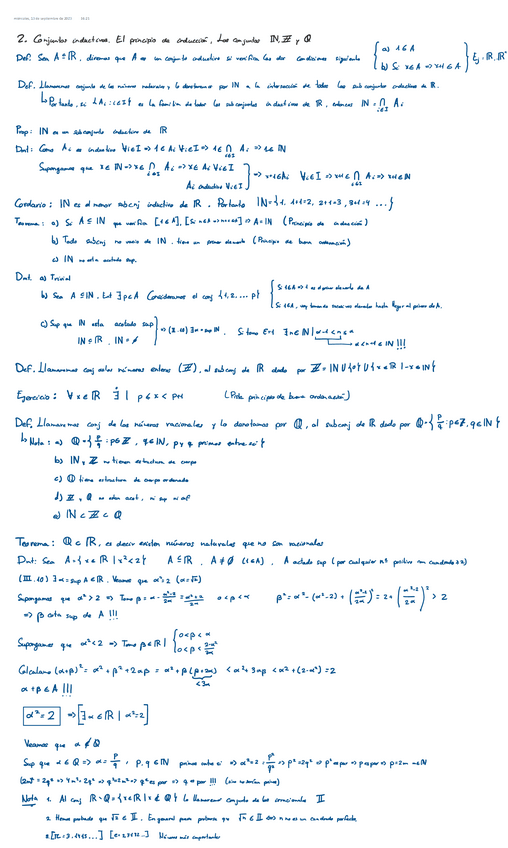 miércoles, 13 de septiembre de 2023
2. Conjuntos inductivos. El principio de inducción. Los conjuntos ℕ, ℤ y ℚ
Def. Sea A ⊆ ℝ, diremos que A es un conjunto inductivo si verifica las dos condiciones siguiente { a) 1 ∈ A
b) Si x ∈ A => x+1 ∈ A } Ej: ℝ, ℝ⁺
Def. Llamaremos conjunto de los números naturales y lo denotamos por ℕ a la intersección de todos los subconjuntos inductivos de ℝ.
↳ Por tanto, si {Ai : i ∈ I} es la familia de todos los subconjuntos inductivos de ℝ, entonces ℕ = ∩ Ai
Prop: ℕ es un subconjunto inductivo de ℝ
Dmt: Como Ai es inductivo ∀i∈I => 1 ∈ Ai ∀i∈I => 1 ∈ ∩ Ai => 1 ∈ ℕ
Supongamos que x ∈ ℕ => x ∈ ∩ Ai => x ∈ Ai ∀i∈I
Ai inductivo ∀i∈I } => x+1 ∈ Ai ∀i∈I => x+1 ∈ ∩ Ai => x+1 ∈ ℕ
Corolario: ℕ es el menor subconj inductivo de ℝ. Por tanto ℕ = {1, 1+1=2, 2+1=3, 3+1=4 ...}
Teorema: a) Si A ⊆ ℕ que verifica [1 ∈ A], [Si n ∈ A => n+1 ∈ A] => A = ℕ (Principio de inducción)
b) Todo subconj no vacío de ℕ, tiene un primer elemento (Principio de buena ordenación)
c) ℕ no esta acotado sup.
Dmt. a) Trivial
b) Sea A ⊆ ℕ, Ent ∃ p ∈ A Consideramos el conj {1, 2, ... p} { Si 1 ∈ A => 1 es primer elemento de A
Si 1 ∉ A, hasta llegar al primero de A.
c) Sup que ℕ esta acotado sup
ℕ ⊆ ℝ, ℕ ≠ ∅ } => ∃ α = sup ℕ. Si tomo ε=1 ∃ n ∈ ℕ | α-1 < n ≤ α
α < n+1 ∈ ℕ !!!
Def. Llamaremos conj de los números enteros (ℤ), al subconj de ℝ dado por ℤ = ℕ ∪ {0} ∪ {x ∈ ℝ | -x ∈ ℕ}
Ejercicio: ∀ x ∈ ℝ ∃ | p ≤ x < p+1 (Pista principio de buena ordenación)
Def. Llamaremos conj de los números racionales y lo denotamos por ℚ, al subconj de ℝ dado por ℚ = {p/q : p ∈ ℤ, q ∈ ℕ}
↳ Nota: a) ℚ = {p/q : p ∈ ℤ, q ∈ ℕ, p y q primos entre sí}
b) ℕ y ℤ no tienen estructura de cuerpo
c) ℚ tiene estructura de cuerpo ordenado
d) ℤ y ℚ no estan acot, ni sup ni inf
e) ℕ ⊂ ℤ ⊂ ℚ
Teorema: ℚ ⊂ ℝ, es decir existen números naturales que no son racionales
Dmt: Sea A = {x ∈ ℝ | x² < 2} A ⊆ ℝ, A ≠ ∅ (1 ∈ A). A actado sup (por cualquier nº positivo con cuadrado ≥ 2)
(III.10) ∃ α = sup A ∈ ℝ. Veamos que α² = 2 (α = √2)
Supongamos que α² > 2 => Tomo β = α - (α²-2)/2α = (α²+2)/2α 0 < β < α β² = α² - (α²-2) + ((α²-2)/2α)² = 2 + ((α²-2)/2α)² > 2
=> β cota sup de A !!!
Supongamos que α² < 2 => Tomo β ∈ ℝ | { 0 < β < α
0 < β < (2-α²)/3α
Calculamo (α+β)² = α² + β² + 2αβ = α² + β(β+2α) < α² + 3αβ < α² + (2-α²) = 2
<3α
α+β ∈ A !!!
α² = 2 => [∃ α ∈ ℝ | α² = 2]
Veamos que α ∉ ℚ
Sup que α ∈ ℚ => α = p/q, p, q ∈ ℕ primos entre sí => α² = 2 = p²/q² => p² = 2q² => p² es par => p es par => p = 2m m ∈ ℕ
(2m)² = 2q² => 4m² = 2q² => q² = 2m² => q² es par => q es par !!! (sino no serían primos)
Nota 1. Al conj ℝ-ℚ = {x ∈ ℝ | x ∉ ℚ} lo llamaremos conjunto de los irracionales 𝕀
2. Hemos probado que √2 ∈ 𝕀. En general puede probarse que √n ∈ 𝕀 <=> n no es un cuadrado perfecto
3. [π = 3.1415...] [e = 2.7172...] Números más importantes